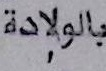 بالولادة